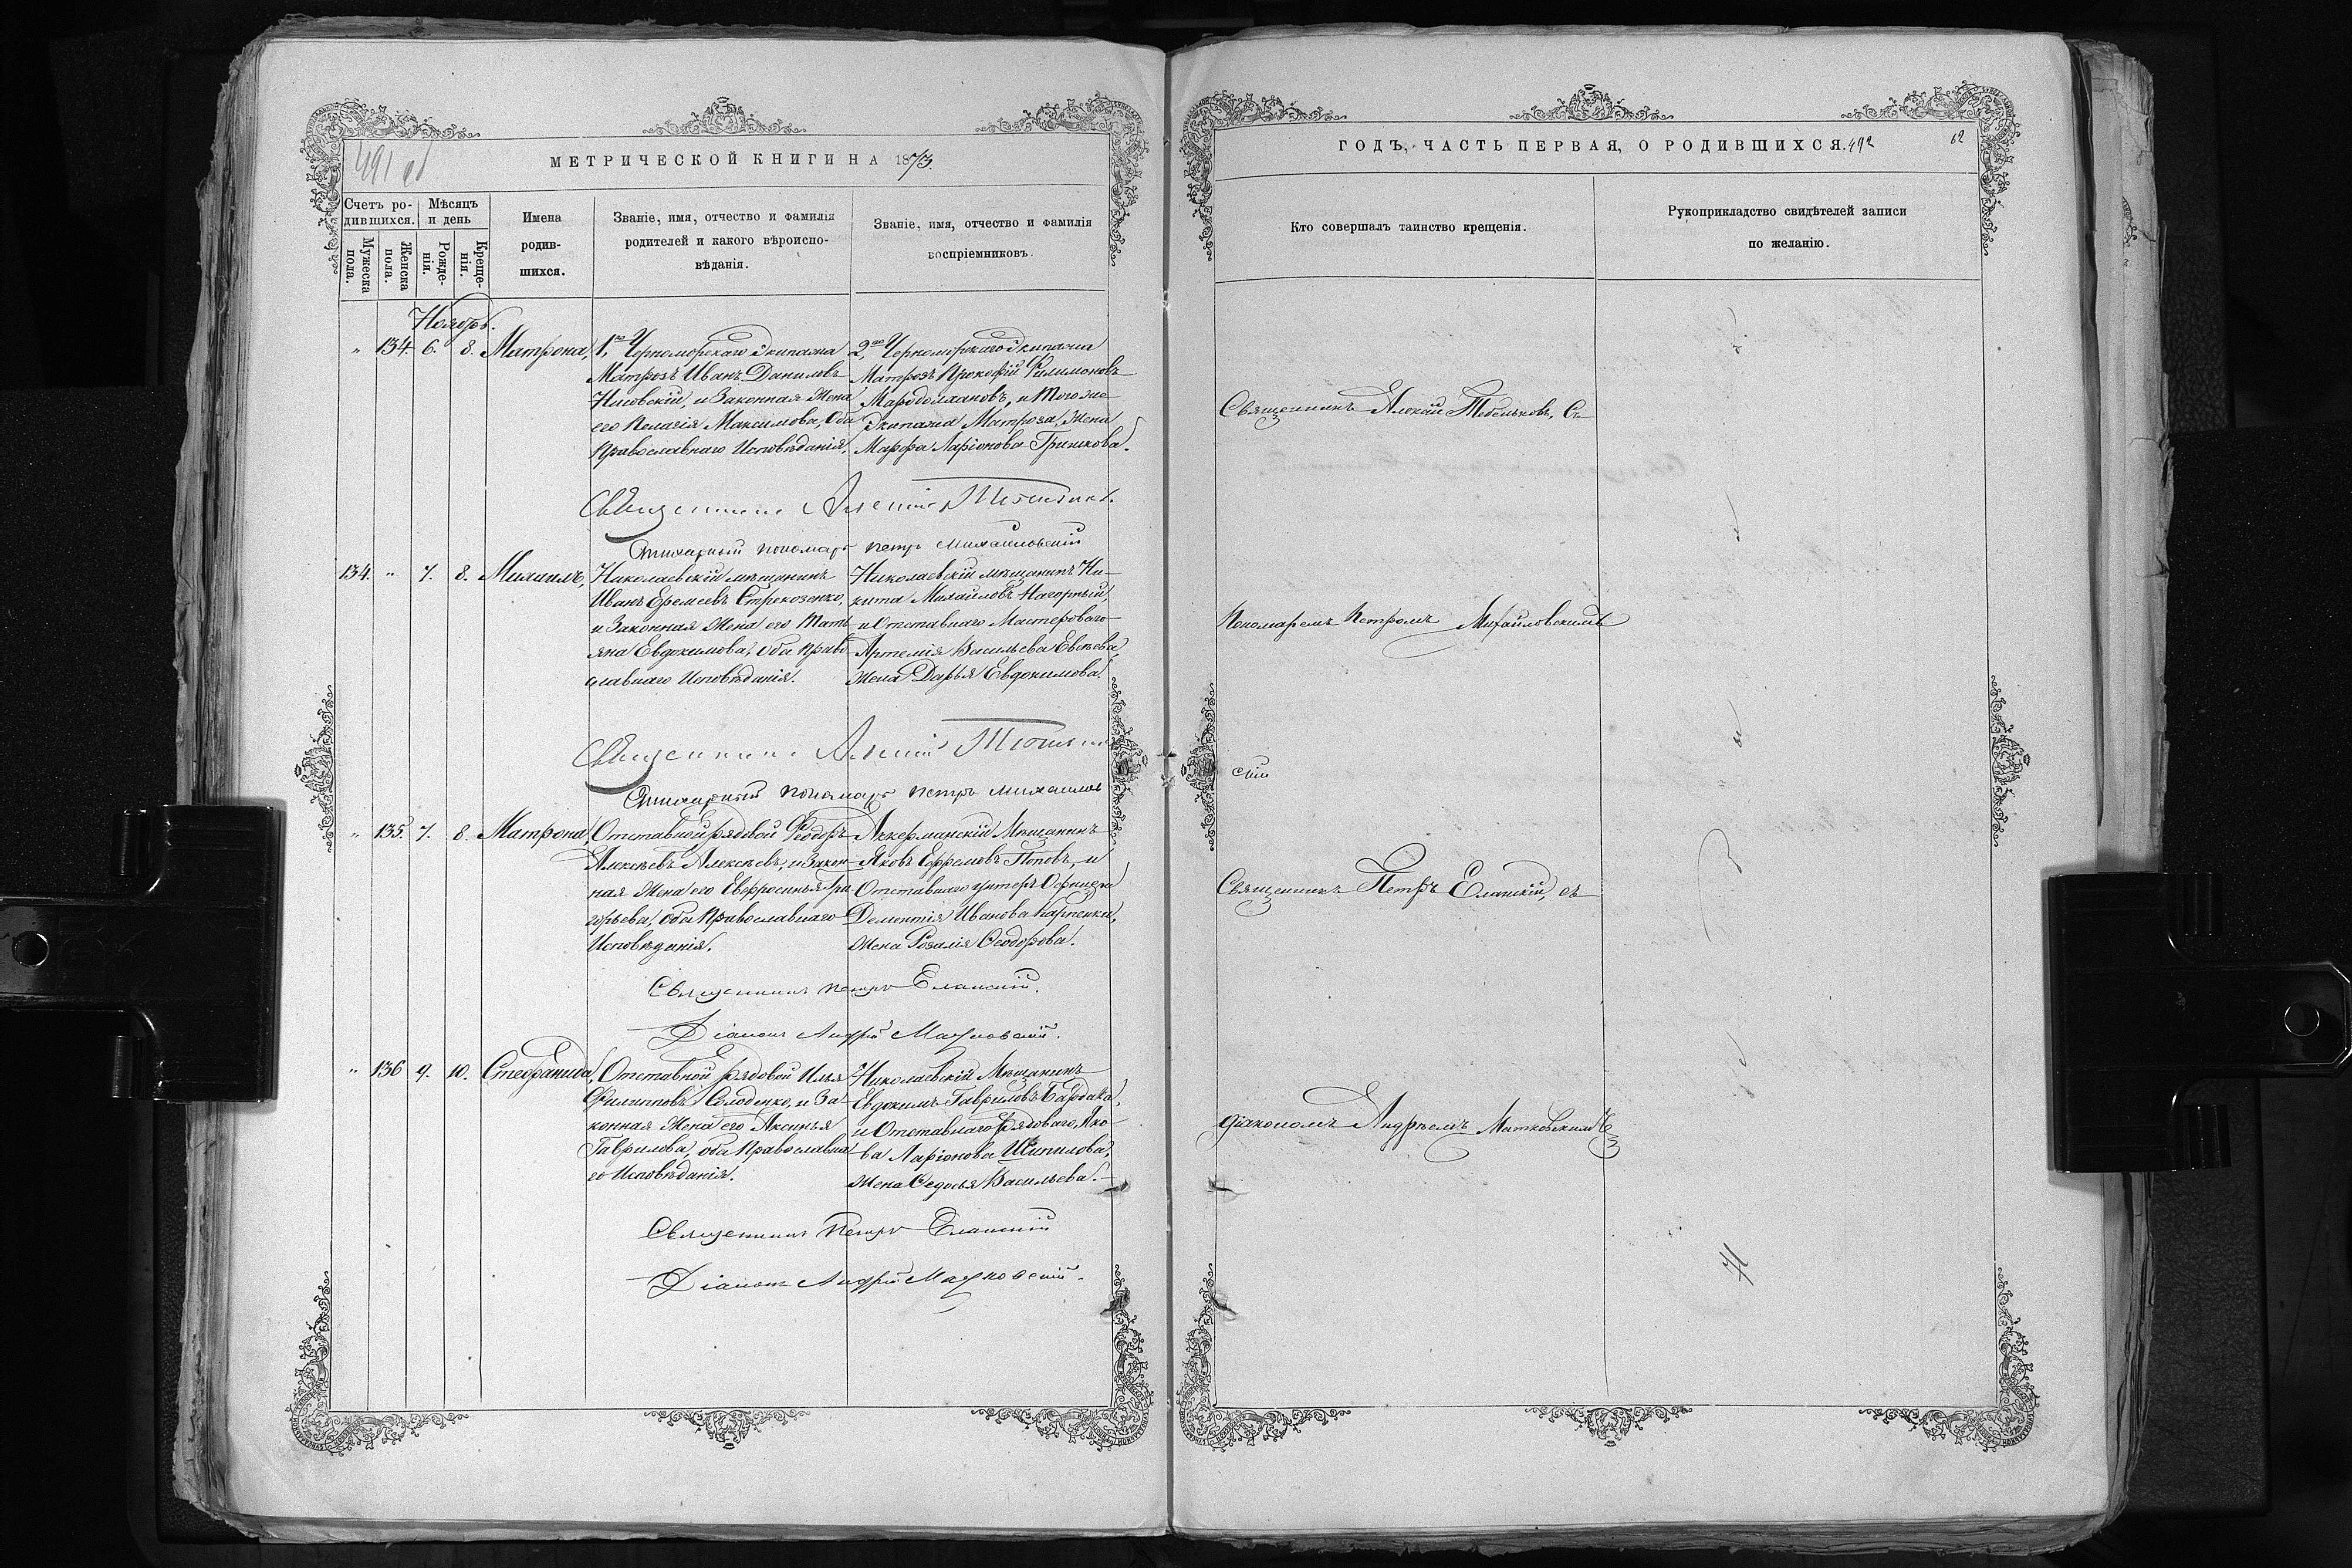 491 об
МЕТРИЧЕСКОЙ КНИГИ НА 1873.
Счетъ ро-
дившихся.
Мѣсяцъ
и день
Мужеска
пола.
Женска
пола.
Рожде-
нія.
Креще-
нія.
Имена
родив-
шихся.
Званіе, имя, отчество и фамилія
родителей и какого вѣроиспо-
вѣданія.
Званіе, имя, отчество и фамилія
воспріемниковъ.
Ноябрь.
" 134. 6. 8. Матрона,
1го Черноморскаго Экипажа
Матрозъ Иванъ Даниловъ
и Законная Жена
его Пелагія Максимова, Оба
Православнаго Исповѣданія.
2го Черноморскаго Экипажа
Матрозъ Прокофій Филимоновъ
и Того же
Экипажа Матроза, Жена
Марфа Ларіонова Гришкова.
Священникъ Алексій
Стихарный пономарь Петръ Михайловскій
134. " 7. 8. Михаилъ,
Николаевскій мѣщанинъ
Иванъ Еремеевъ Стрекозенко,
и Законная Жена его Тать-
яна Евдокимова, оба Право-
славнаго Исповѣданія.
Николаевскій мѣщанинъ Ни-
кита Михайловъ Нагорный,
и Отставнаго Мастероваго
Артемія Васильева Евсѣева,
жена Дарья Евдокимова.
Священникъ Алексій
Стихарный пономарь Петръ Михайловскій
" 135. 7. 8. Матрона,
Отставной рядовой Ѳеодоръ
Алексѣевъ Алексѣевъ, и Закон-
ная Жена его Евфросинья Гри-
горьева, оба Православнаго
Исповѣданія.
Аккерманскій Мѣщанинъ
Яковъ Ефремовъ Поповъ, и
Отставнаго унтеръ Офицера
Дементія Иванова Карпенки,
жена Розалія Ѳеодорова.
Священникъ Петръ Еланскій.
Діаконъ Андрей Матковскій.
" 136 9. 10. Стефанида,
Отставной рядовой Илья
Филипповъ Солоденко, и За-
конная Жена его Аксинья
Гаврилова, оба Православна-
го Исповѣданія.
Николаевскій Мѣщанинъ
Евдокимъ Гавриловъ Бардакъ,
и Отставнаго Рядоваго, Яко-
ва Ларіонова Шипилова,
жена Ѳедосья Васильева.
Священникъ Петръ Еланскій
Діаконъ Андрей Матковскій.
ГОДЪ, ЧАСТЬ ПЕРВАЯ, О РОДИВШИХСЯ. 492
62
Кто совершалъ таинство крещенія.
Рукоприкладство свидѣтелей записи
по желанію.
Священникъ Алексій Тобольковъ, Съ
Пономаремъ Петромъ Михайловскимъ
Священникъ Петръ Еланскій, съ
Діакономъ Андреемъ Матковскимъ